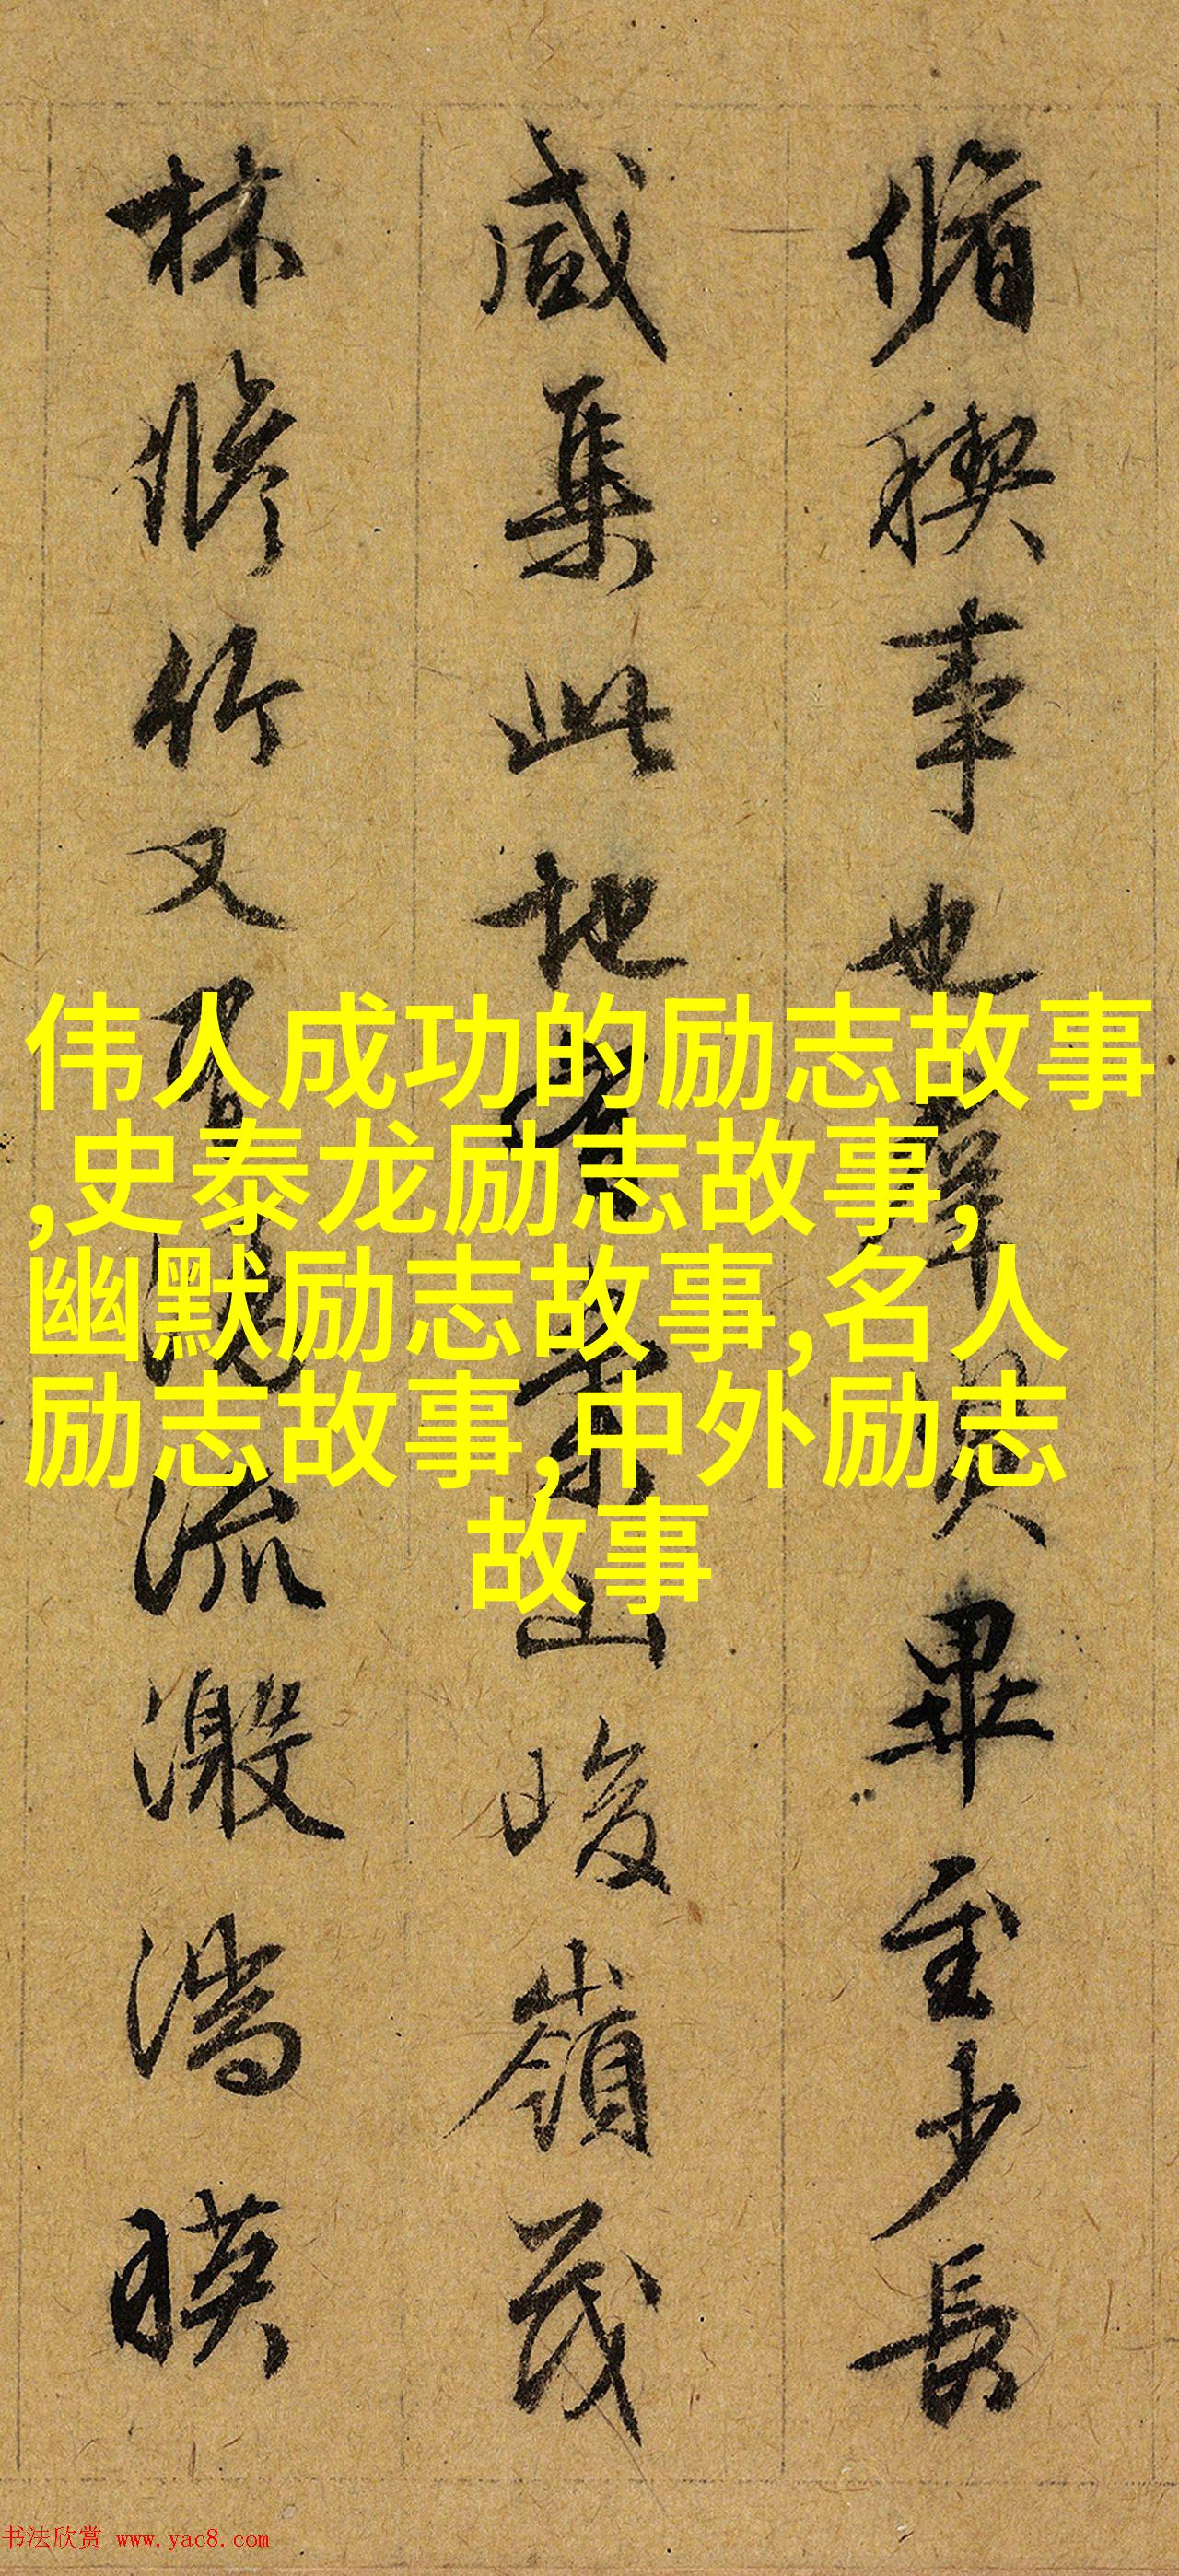 脩稧事也群賢畢至少長
咸集此地
山峻嶺茂
林脩竹又有清流激湍暎
伟人成功的励志故事
,史泰龙励志故事,
幽默励志故事,名人
励志故事,中外励志
故事
书法欣赏 www.yac8.com